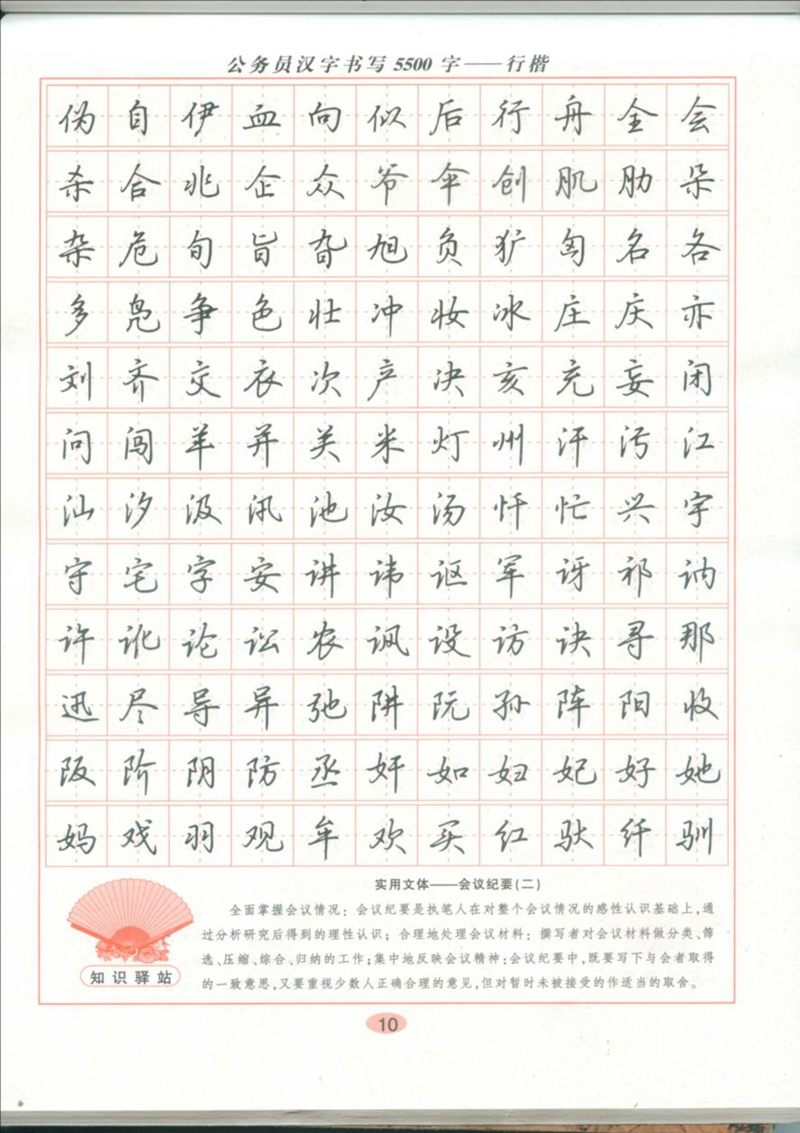 公务员汉字书写5500字——行楷
伪自伊血向似后行舟全会
杀合兆企众爷伞创肌肋朵
杂危旬旨旮旭负犷匈名各
多凫争色壮冲妆冰庄庆亦
刘齐交衣次产决亥充妄闭
问闯羊并关米灯州汗污江
汕汐汲汛池汝汤忏忙兴宇
守宅字安讲讳讴军讶祁讷
许讹论讼农讽设访诀寻那
迅尽导异弛阱阮孙阵阳收
阪阶阴防丞奸如妇妃好她
妈戏羽观牟欢买红驮纤驯
实用文体——会议纪要(二)
全面掌握会议情况：会议纪要是执笔人在对整个会议情况的感性认识基础上,通
过分析研究后得到的理性认识；合理地处理会议材料：撰写者对会议材料做分类、筛
选、压缩、综合、归纳的工作;集中地反映会议精神:会议纪要中,既要写下与会者取得
的一致意思,又要重视少数人正确合理的意见,但对暂时未被接受的作适当的取舍。
知识驿站
10